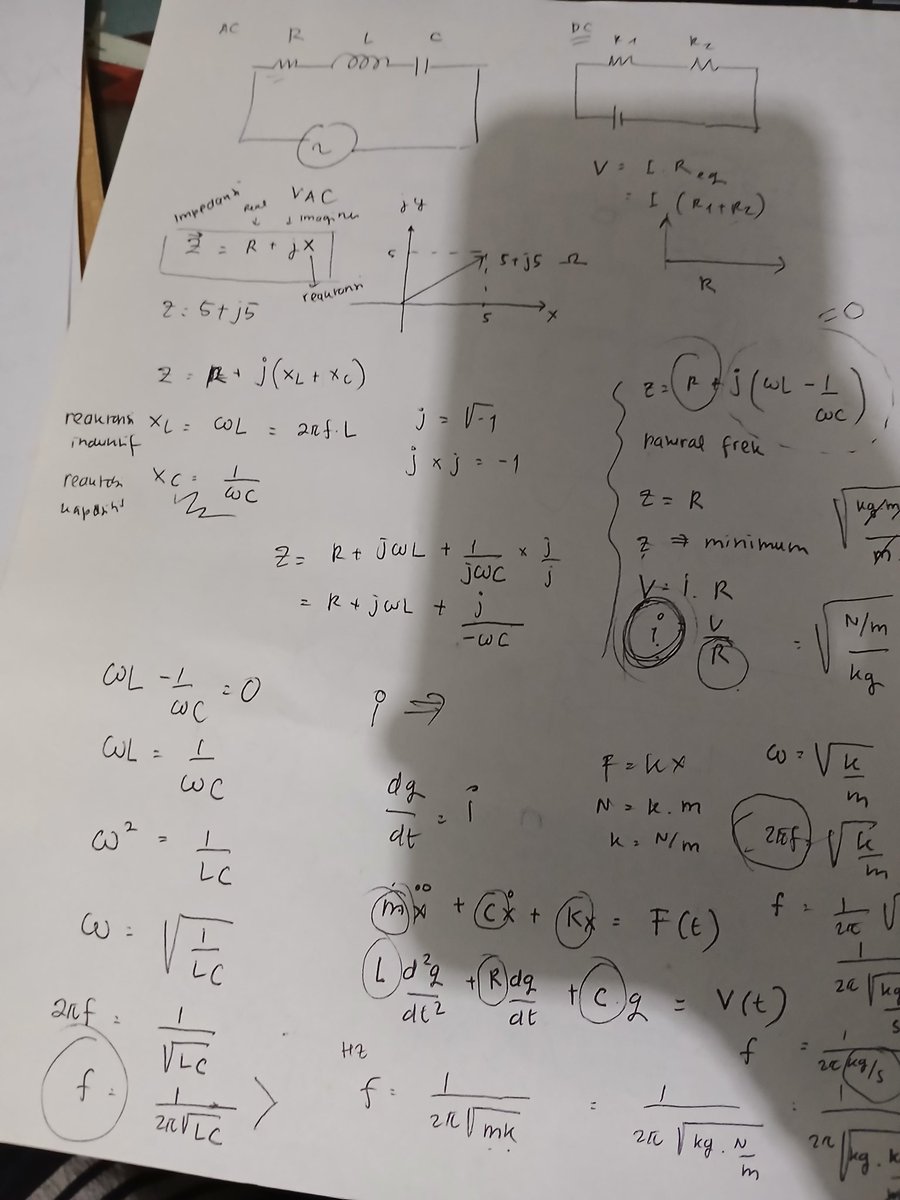 AC
R L C
DC
R1 R2
~
V = I . Req
= I (R1+R2)
R
VAC
impedansi
real
imaginer
Z = R + jX
reaktansi
jy
5
5+j5 Ω
5
x
Z = 5+j5
Z = R + j(XL + XC)
reaktansi induktif XL = ωL = 2πf.L
XC = 1/ωC
j = √-1
j x j = -1
Z = R + jωL + 1/jωC x j/j
= R + jωL + j/-ωC
=0
Z = R + j(ωL - 1/ωC)
natural frek
Z = R
Z ⇒ minimum
V = i. R
i V/R
√kg/m/m
= √N/m/kg
ωL - 1/ωC = 0
ωL = 1/ωC
ω² = 1/LC
ω = √1/LC
2πf = 1/√LC
f = 1/2π√LC
i ⇒
dq/dt = i
F = kx
N = k. m
k = N/m
ω = √k/m
2πf √k/m
mẍ + Cẋ + Kx = F(t)
L d²q/dt² + R dq/dt + C q = V(t)
f = 1/2π √
1/2π √kg/s
f = 1/2π kg/s
HZ
f = 1/2π√mk = 1/2π√kg. N/m = 1/2π√kg. k